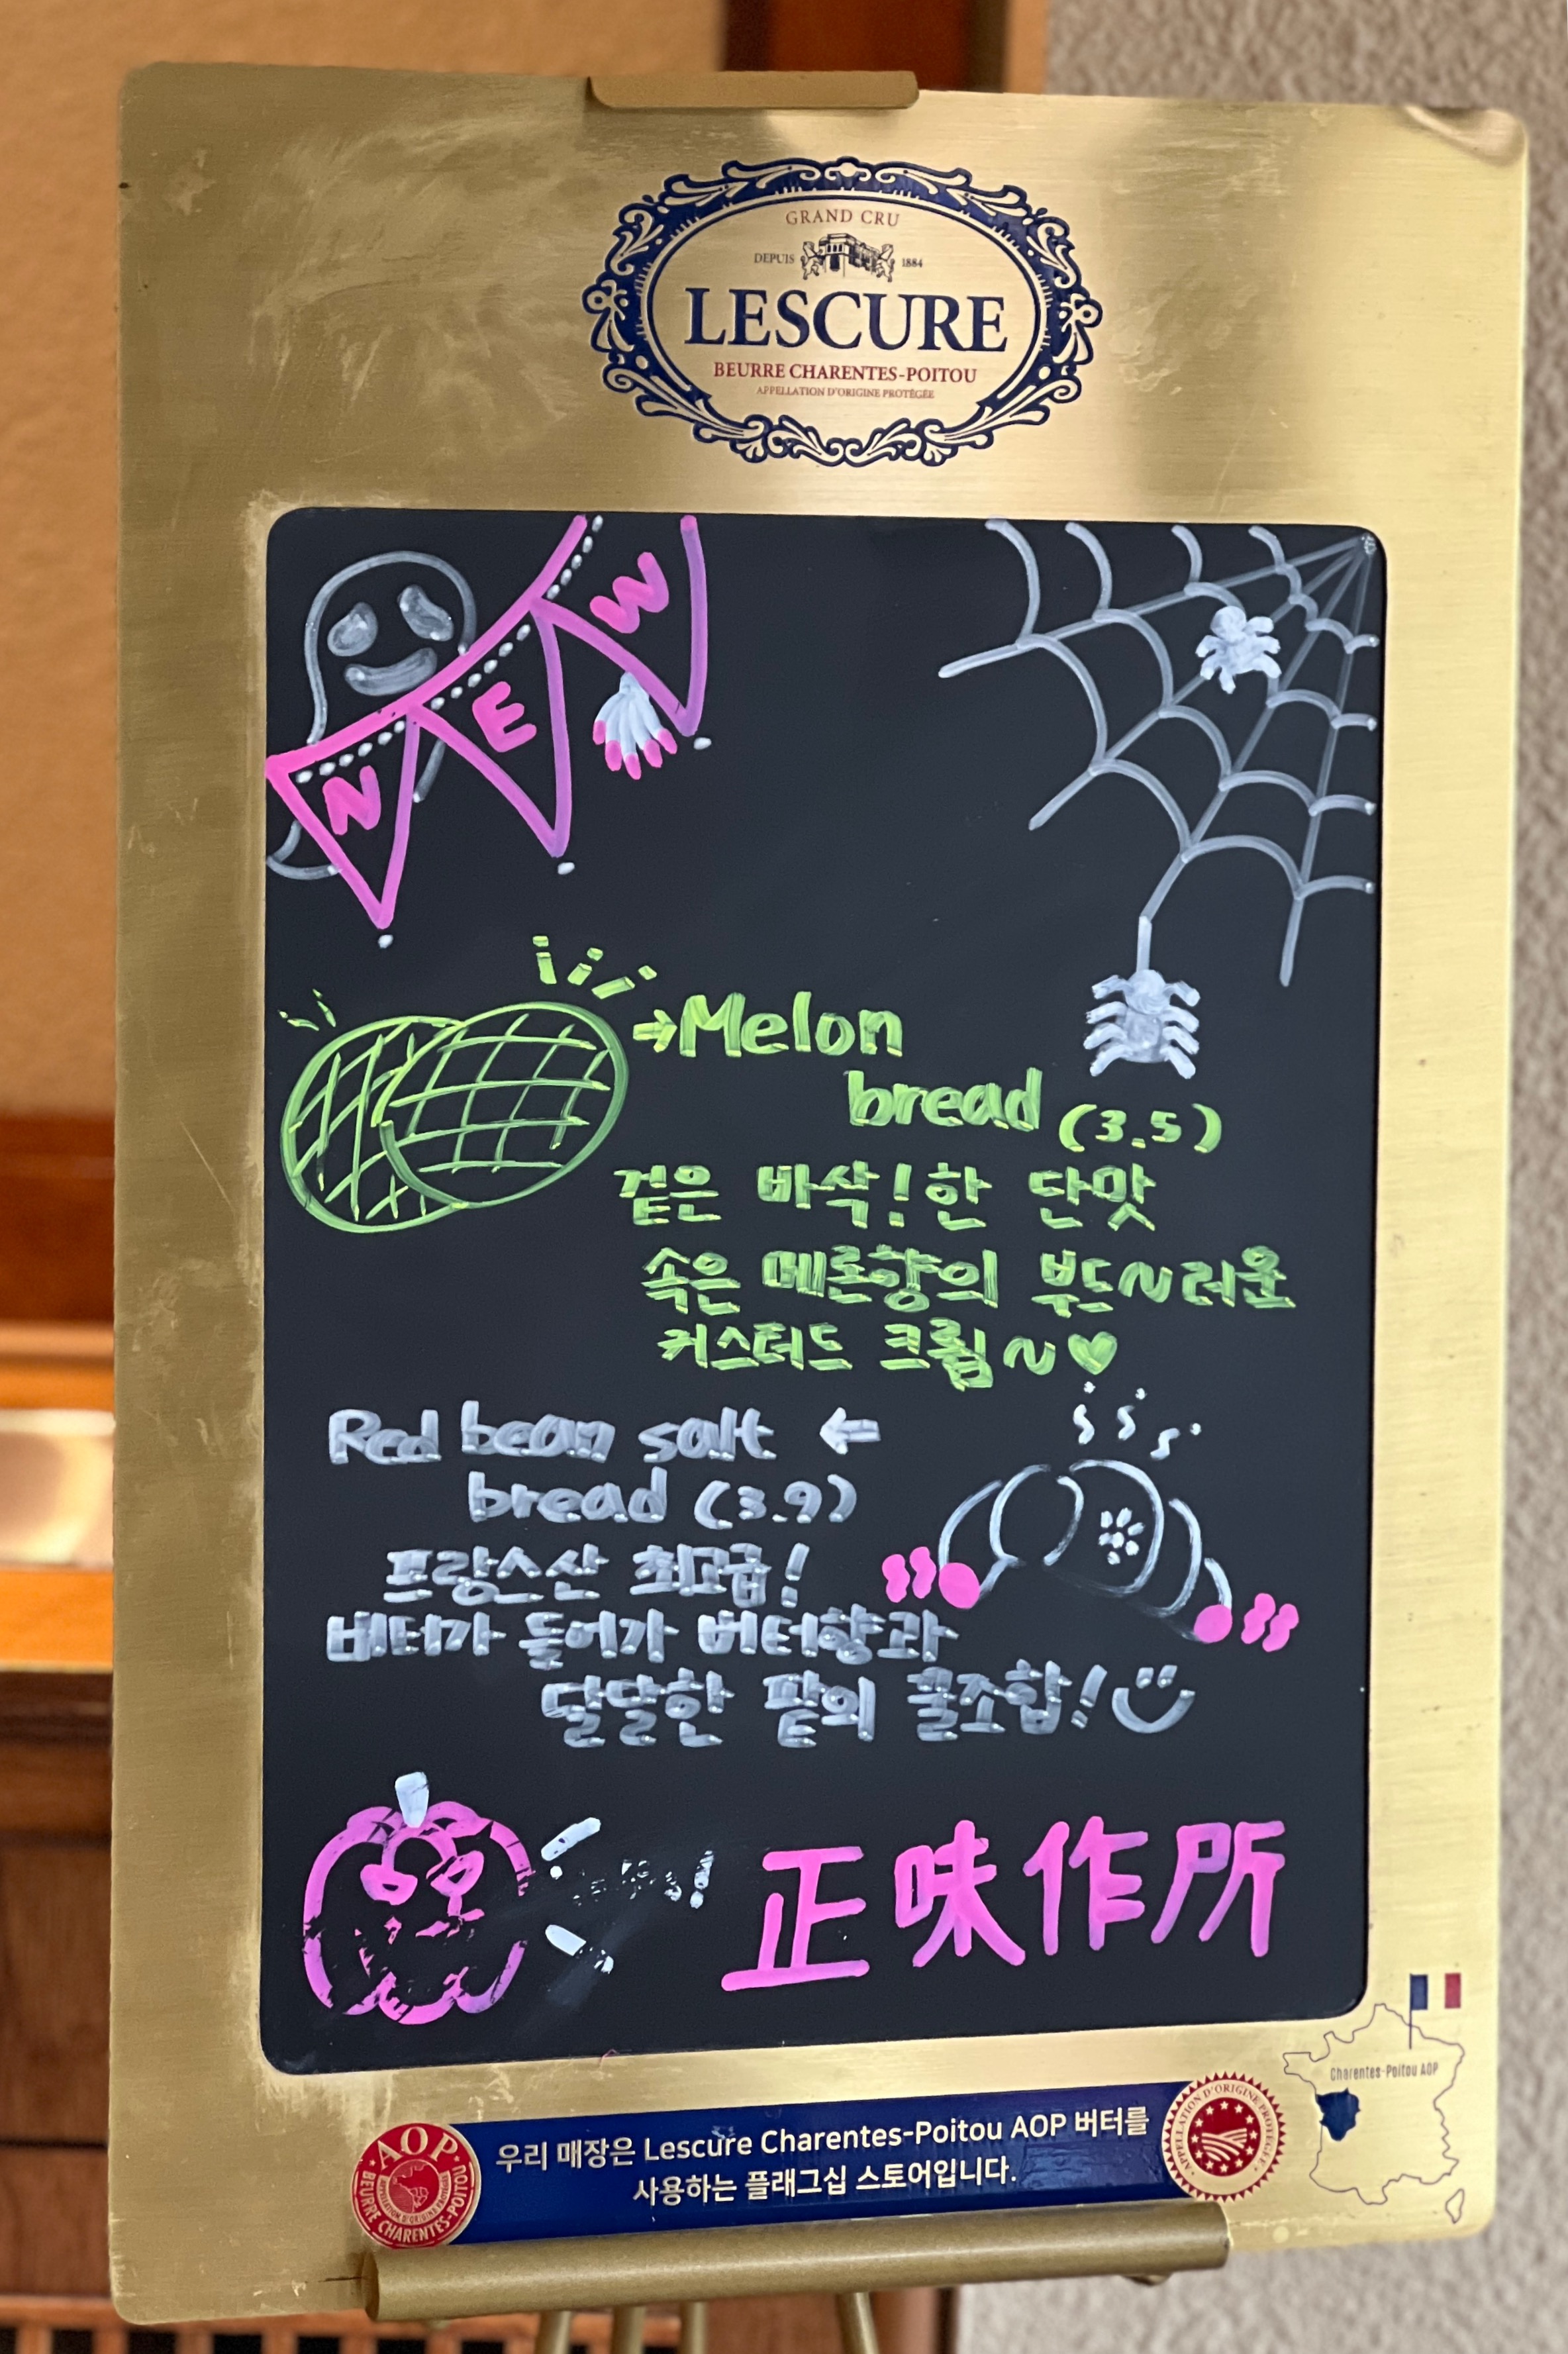 GRAND CRU
DEPUIS 1884
LESCURE
BEURRE CHARENTES-POITOU
APPELLATION D'ORIGINE PROTÉGÉE
NEW
Melon
bread (3.5)
겉은 바삭!한 단맛
속은 메론향의 부드~러운
커스터드 크림~♥
Red bean salt
bread (3.9)
프랑스산 최고급!
버터가 들어가 버터향과
달달한 팥의 꿀조합!
正味作所
Charentes-Poitou AOP
우리 매장은 Lescure Charentes-Poitou AOP 버터를
사용하는 플래그십 스토어입니다.
AOP
BEURRE CHARENTES-POITOU
APPELLATION D'ORIGINE PROTÉGÉE